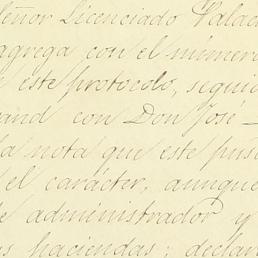 Señor Licenciado Valad
agrega con el número
este protocolo, segui
and con Don José
la nota que este
el carácter, aunque
administrador y
haciendas; declar